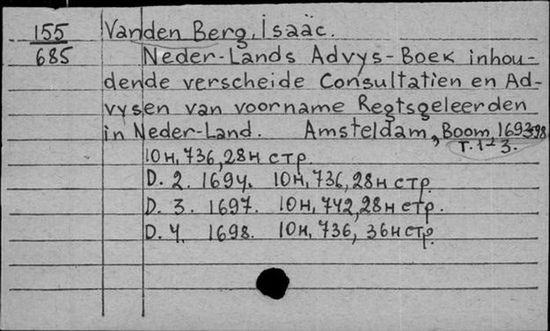 155 Van den Berg, Isaäc.
685 Neder-Lands Advys-Boek inhou-
dende verscheide Consultatien en Ad-
vysen van voorname Regtsgeleerden
in Neder-Land. Amsteldam, Boom, 1693-98
T. 1-3.
10 н, 736, 28 н стр.
D. 2. 1694. 10 н, 736, 28 н стр.
D. 3. 1697. 10 н, 742, 28 н стр.
D. 4. 1698. 10 н, 736, 36 н стр.